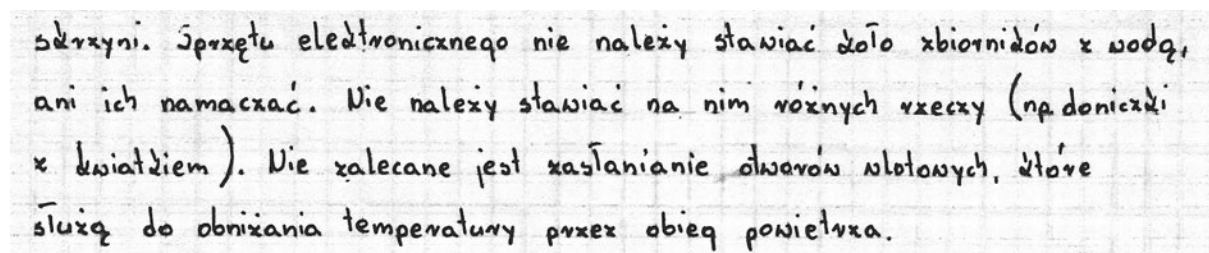 skrzyni. Sprzętu elektronicznego nie należy stawiać koło zbiorników z wodą,
ani ich namaczać. Nie należy stawiać na nim różnych rzeczy (np. doniczki
z kwiatkiem). Nie zalecane jest zasłanianie otworów wlotowych, które
służą do obniżania temperatury przez obieg powietrza.